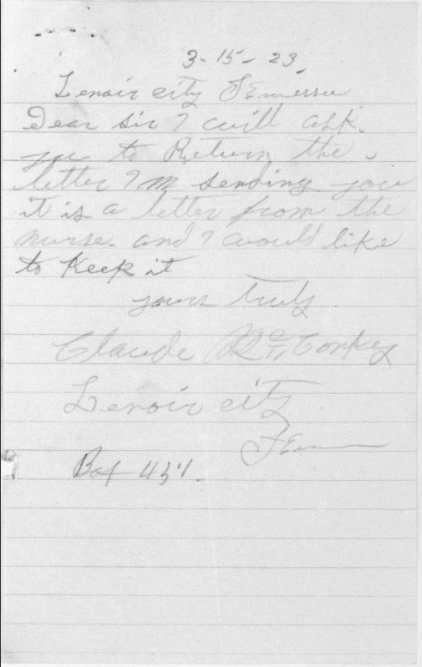 3-15-23
Lenoir city Tennessee
Dear sir I will ask
you to Return the
letter I m sending you
it is a letter from the
nurse. and I would like
to Keep it
yours truly.
Claude McConkey
Lenoir city
Tenn
Box 451.